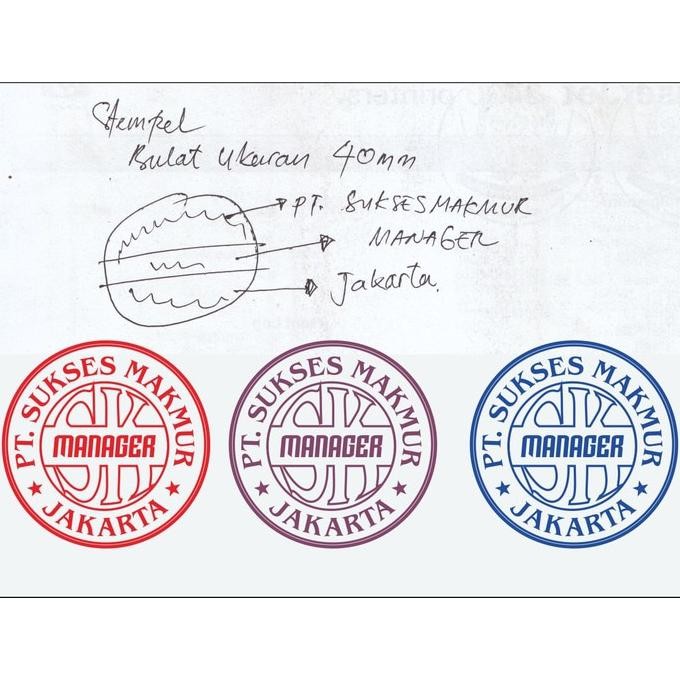 Stempel
Bulat Ukuran 40mm
PT. SUKSES MAKMUR
MANAGER
Jakarta.
PT. SUKSES MAKMUR
SK
MANAGER
★ JAKARTA ★
PT. SUKSES MAKMUR
SK
MANAGER
★ JAKARTA ★
PT. SUKSES MAKMUR
SK
MANAGER
★ JAKARTA ★